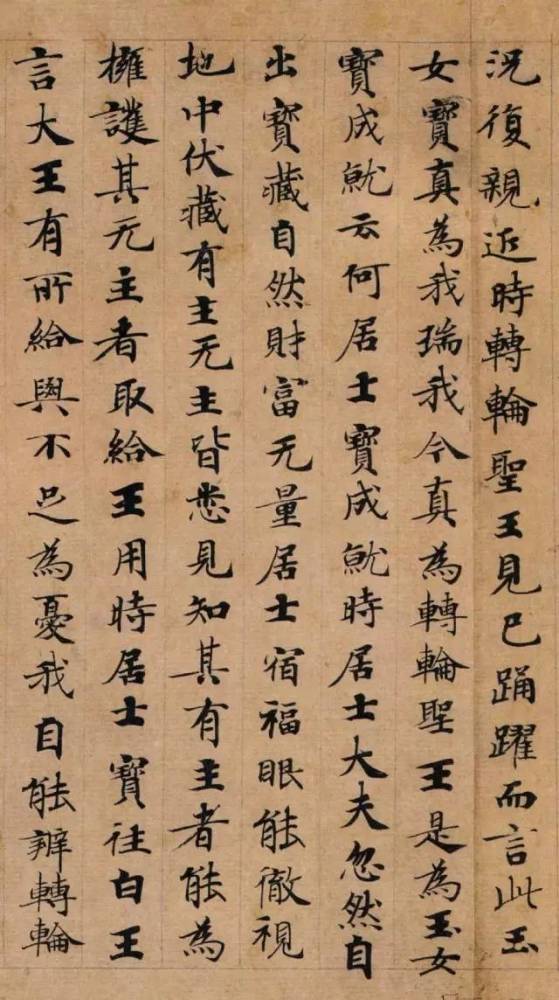 况復親近時轉輪聖王見已踊躍而言此玉
女寶真為我瑞我今真為轉輪聖王是為玉女
寶成就云何居士寶成就時居士大夫忽然自
出寶藏自然財富无量居士宿福眼能徹視
地中伏藏有主无主皆悉見知其有主者能為
擁護其无主者取給王用時居士寶往白王
言大王有所給與不足為憂我自能辦轉輪